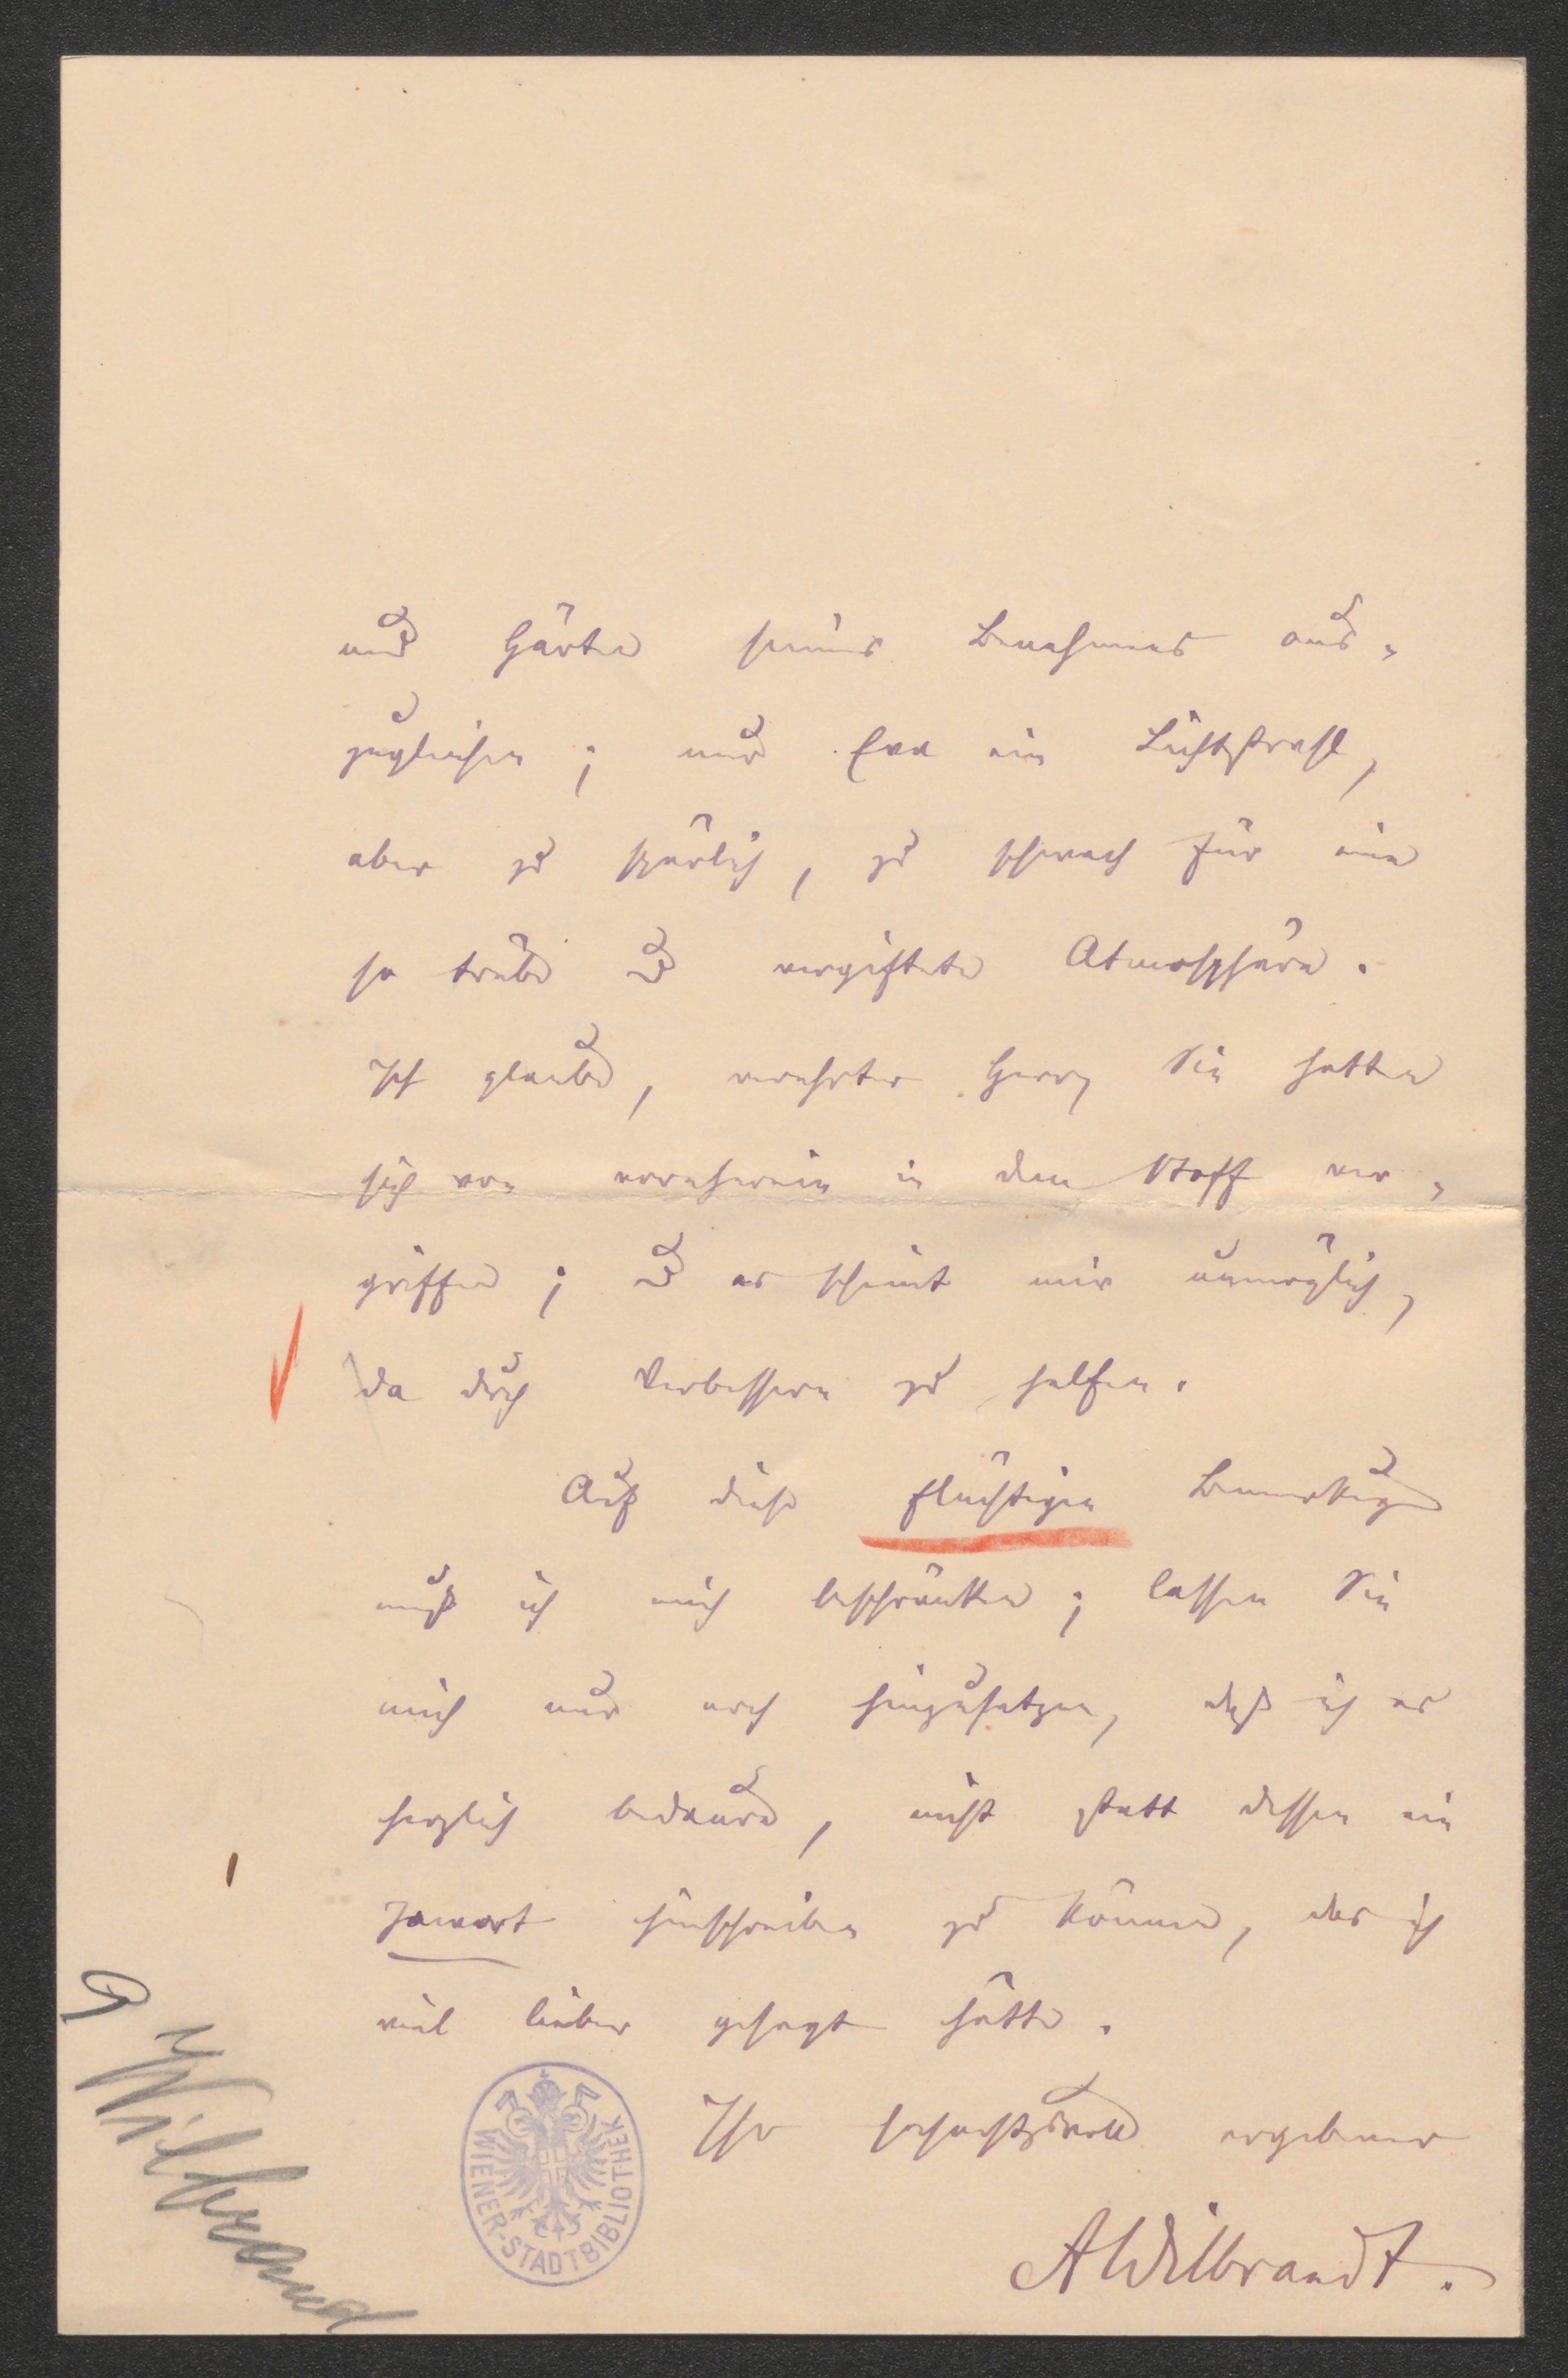 und Härte seines Benehmens aus-
zugleichen; nur Eva ein Lichtstrahl,
aber zu spärlich, zu schwach für eine
so trübe u vergiftete Atmosphäre.
Ich glaube, verehrter Herr, Sie hatten
sich von vornherein in dem Stoff ver-
griffen; u es scheint mir unmöglich,
da durch Verbessern zu helfen.
Auf diese flüchtigen Bemerkungen
muß ich mich beschränken; lassen Sie
mich nur noch hinzusetzen, daß ich es
herzlich bedaure, nicht statt dessen ein
Jawort hinschreiben zu können, das ich
viel lieber gesagt hätte.
Ihr hochachtungsvoll ergebener
AWilbrandt.
Wilbrand
WIENER-STADTBIBLIOTHEK